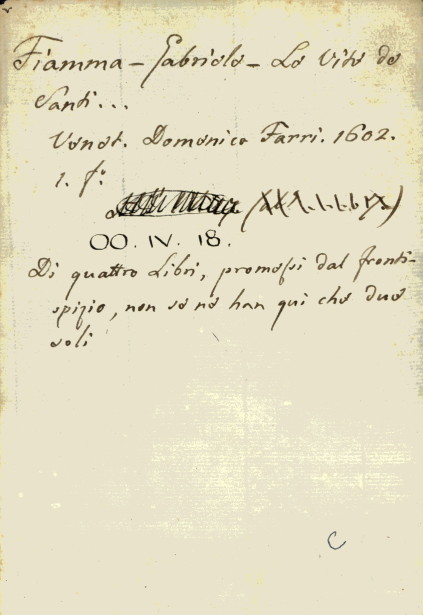 Fiamma - Gabriele - Le Vite de
Santi...
Venet. Domenico Farri. 1602.
1. f.º
OO. IV. 18.
Di quattro Libri, promessi dal fronti-
spizio, non se ne han qui che due
soli
C